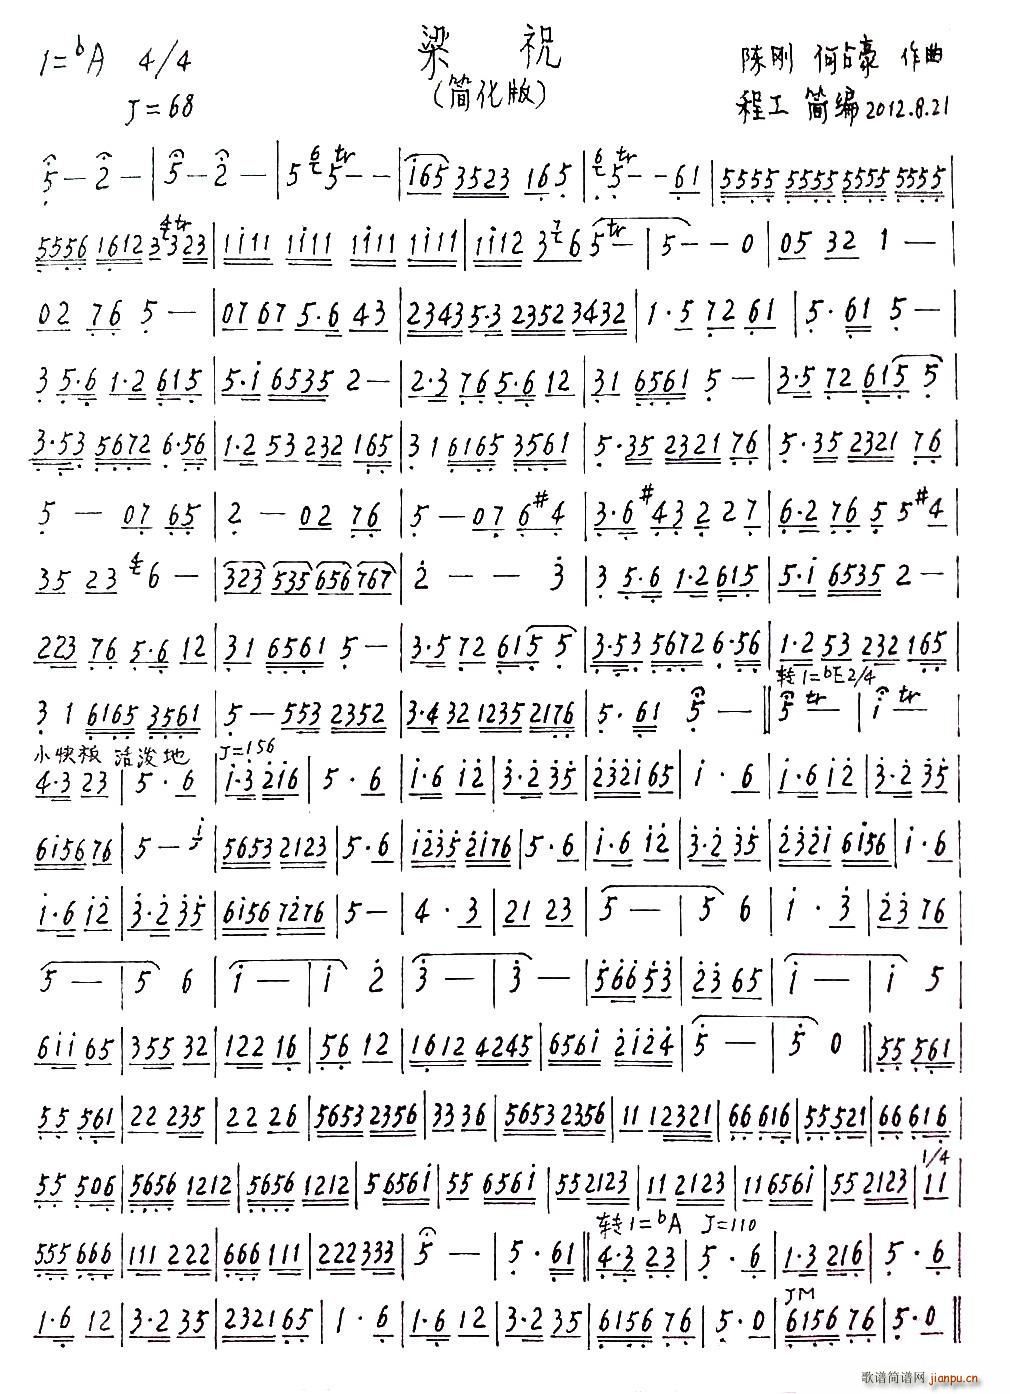 1=bA 4/4
♩=68
梁 祝
(简化版)
陈刚 何占豪 作曲
程工 简编 2012.8.21
5 - 2 - | 5 - 2 - | 5 5 tr - - | i65 3523 165 | 5 tr - - 61 | 5555 5555 5555 5555 |
05 32 1 - |
02 76 5 - | 07 67 5·6 43 | 2343 5·3 2352 3432 | 1·5 72 61 | 5·61 5 - |
3 5·6 1·2 615 | 5·i 6535 2 - | 2·3 76 5·6 12 | 31 6561 5 - | 3·5 72 615 5 |
3·53 5672 6·56 | 1·2 53 232 165 | 3 1 6165 3561 | 5·35 2321 76 | 5·35 2321 76 |
5 - 07 65 | 2 - 02 76 | 5 - 07 6#4 | 3·6 #43 2 2 7 | 6·2 76 5 5#4 |
35 23 6 - | 323 535 656 767 | 2 - - 3 | 3 5·6 1·2 615 | 5·i 6535 2 - |
223 76 5·6 12 | 31 6561 5 - | 3·5 72 615 5 | 3·53 5672 6·56 | 1·2 53 232 165 |
转1=bE 2/4
3 1 6165 3561 | 5 - 553 2352 | 3·4 32 1235 2176 | 5·61 5 - ‖ 5 tr - | i tr - |
小快板 活泼地 ♩=156
4·3 23 | 5·6 | i·3 2i6 | 5·6 | i·6 i2 | 3·2 35 | 232i 65 | i·6 | i·6 i2 | 3·2 35 |
6i56 76 | 5 - | 5653 2123 | 5·6 | i235 2i76 | 5·6 | i·6 i2 | 3·2 35 | 232i 6i56 | i·6 |
i·6 i2 | 3·2 35 | 6i56 7276 | 5 - | 4·3 | 21 23 | 5 - | 5 6 | i·3 | 23 76 |
5 - | 5 6 | i - | i 2 | 3 - | 3 - | 566 53 | 23 65 | i - | i 5 |
6ii 65 | 355 32 | 122 16 | 56 12 | 1612 4245 | 656i 2i24 | 5 - | 5 0 ‖ 55 561 |
55 561 | 22 235 | 22 26 | 5653 2356 | 33 36 | 5653 2356 | 11 12321 | 66 616 | 55 521 | 66 616 |
1/4
55 506 | 5656 1212 | 5656 1212 | 5 6561 | 55 656i | 55 2123 | 11 2123 | 11 656i | 55 2123 | 11 |
转1=bA ♩=110
555 666 | 111 222 | 666 111 | 222 333 | 5 - | 5·61 ‖ 4·3 23 | 5·6 | 1·3 216 | 5·6 |
JM
1·6 12 | 3·2 35 | 2321 65 | 1·6 | 1·6 12 | 3·2 35 | 6156 76 | 5·0 | 6156 76 | 5·0 ‖
歌谱简谱网 jianpu.cn